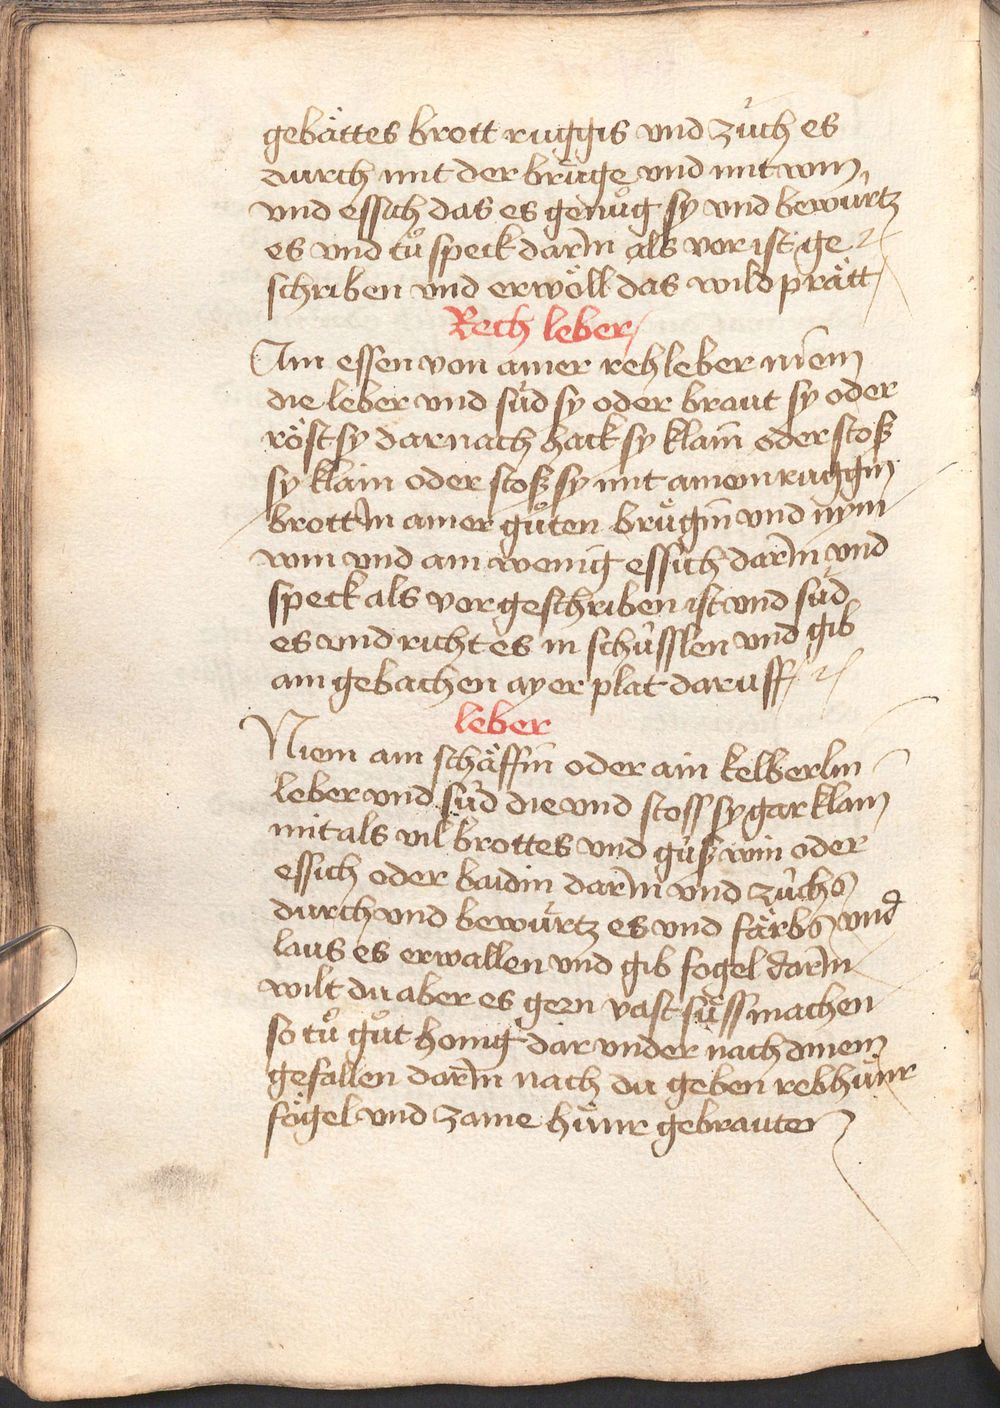 gebättes brott ruggis vnd zùch es
durch mit der brüge vnd mit win
vnd essich das es genůg sy vnd bewürtz
es vnd tů speck darin als vor ist ge
schriben vnd erwöll das wild prätt
Rech leber
Ain essen von ainer rehleber niem
die leber vnd süd sy oder braut sy oder
röst sy darnach hack sy klain oder stoß
sy klain oder stoß sy mit ainem ruggin
brott in ainer gůten brügin vnd nym
win vnd ain wenig essich darin vnd
speck als vor geschriben ist vnd süd
es vnd richt es in schüsslen vnd gib
ain gebachen ayer plat daruff
leber
Niem ain schäffin oder ain kelberlin
leber vnd süd die vnd stoss sy gar klain
mit als vil brottes vnd güß win oder
essich oder baidin darin vnd züchs
durch vnd bewürtz es vnd färbs vnd
laus es erwallen vnd gib fogel darin
wilt du aber es gern vast süss machen
so tů gůt honig dar vnder nach dinem
gefallen darin nach du geben rebhünr
fögel vnd zame hünr gebrauten